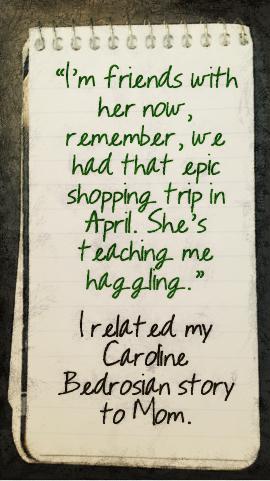 “I’m friends with
her now,
remember, we
had that epic
shopping trip in
April. She’s
teaching me
haggling.”
I related my
Caroline
Bedrosian story
to Mom.